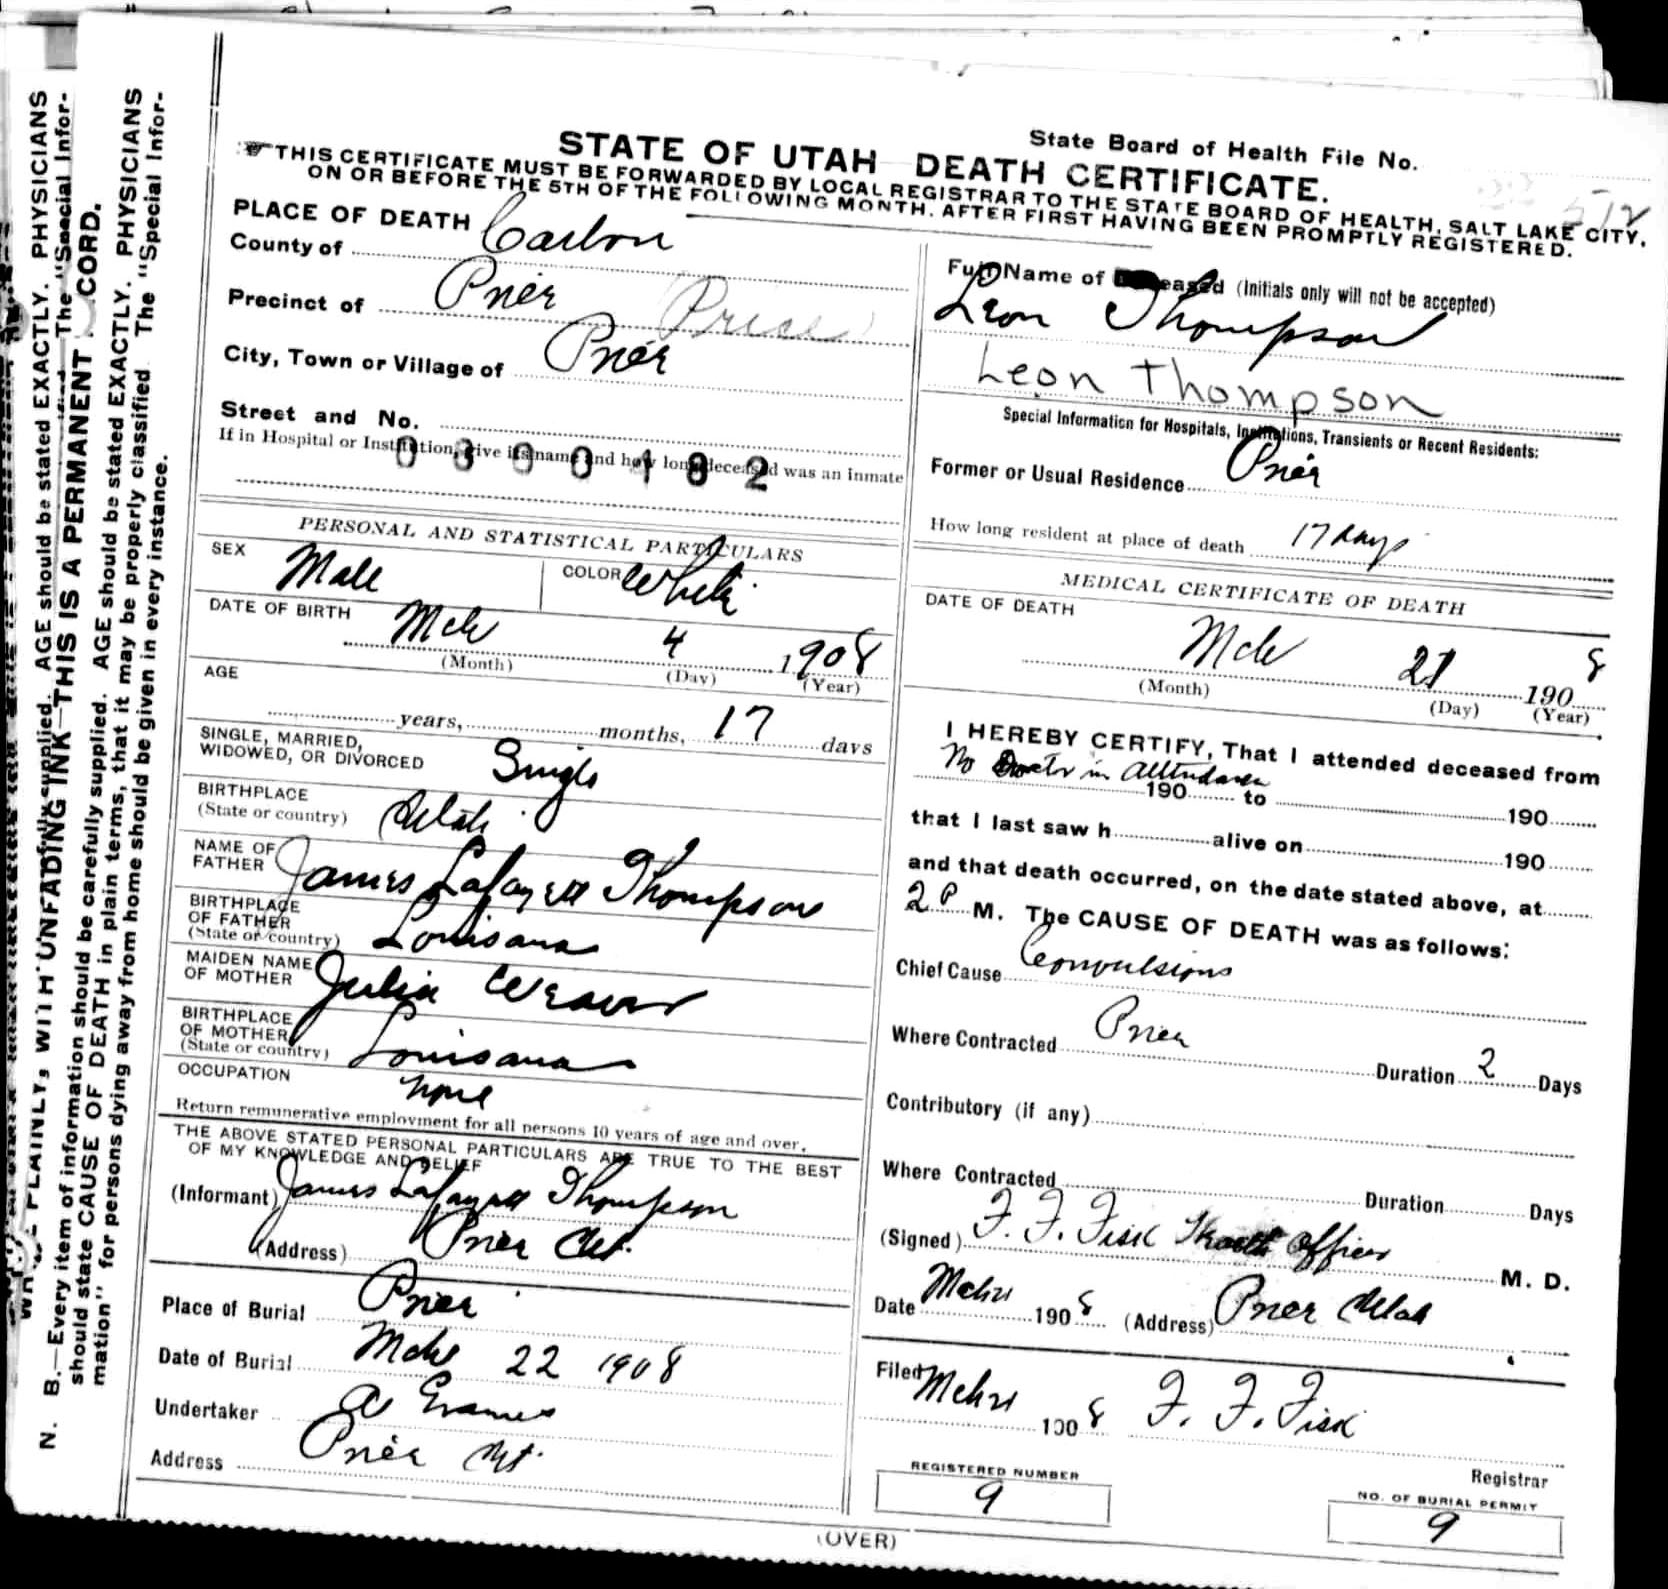 State Board of Health File No.
512
STATE OF UTAH DEATH CERTIFICATE.
THIS CERTIFICATE MUST BE FORWARDED BY LOCAL REGISTRAR TO THE STATE BOARD OF HEALTH, SALT LAKE CITY,
ON OR BEFORE THE 5TH OF THE FOLLOWING MONTH, AFTER FIRST HAVING BEEN PROMPTLY REGISTERED.
PLACE OF DEATH
County of Carbon
Precinct of Price Price
City, Town or Village of Price
Street and No.
If in Hospital or Institution, give its name and how long deceased was an inmate
0300182
PERSONAL AND STATISTICAL PARTICULARS
SEX Male COLOR White
DATE OF BIRTH Mch 4 1908
(Month) (Day) (Year)
AGE
years, months, 17 days
SINGLE, MARRIED,
WIDOWED, OR DIVORCED Single
BIRTHPLACE
(State or country) Utah
NAME OF
FATHER James Lafayett Thompson
BIRTHPLACE
OF FATHER
(State or country) Louisana
MAIDEN NAME
OF MOTHER Julia Weaver
BIRTHPLACE
OF MOTHER
(State or country) Louisana
OCCUPATION None
Return remunerative employment for all persons 10 years of age and over.
THE ABOVE STATED PERSONAL PARTICULARS ARE TRUE TO THE BEST
OF MY KNOWLEDGE AND BELIEF
(Informant) James Lafayett Thompson
(Address) Price Ut.
Place of Burial Price
Date of Burial Mch 22 1908
Undertaker
Address Price Ut.
Full Name of Deceased (Initials only will not be accepted)
Leon Thompson
Leon Thompson
Special Information for Hospitals, Institutions, Transients or Recent Residents:
Former or Usual Residence Price
How long resident at place of death 17 days
MEDICAL CERTIFICATE OF DEATH
DATE OF DEATH
Mch 21 1908
(Month) (Day) (Year)
I HEREBY CERTIFY, That I attended deceased from
No Doctor in Attendance
190 to 190
that I last saw h alive on 190
and that death occurred, on the date stated above, at
2 P M. The CAUSE OF DEATH was as follows:
Chief Cause Convulsions
Where Contracted Price Duration 2 Days
Contributory (if any)
Where Contracted Duration Days
(Signed) F. F. Fisk Health Officer M. D.
Date 1908 (Address) Price Utah
Filed 1908 F. F. Fisk
Registrar
REGISTERED NUMBER
9
NO. OF BURIAL PERMIT
9
(OVER)
N. B.—Every item of information should be carefully supplied. AGE should be stated EXACTLY. PHYSICIANS
should state CAUSE OF DEATH in plain terms, that it may be properly classified. The "Special Infor-
mation" for persons dying away from home should be given in every instance.
WRITE PLAINLY, WITH UNFADING INK—THIS IS A PERMANENT RECORD.